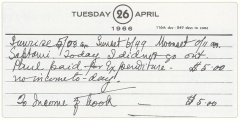 TUESDAY 26 APRIL
1966
116th day - 249 days to come
Sunrise 5/03 am Sunset 6/49 Moonset 0/11 am.
Saptami. To-day I did not go out.
Paid for Expenditure. $5.00
no income to-day!
To Income of book — $5.00